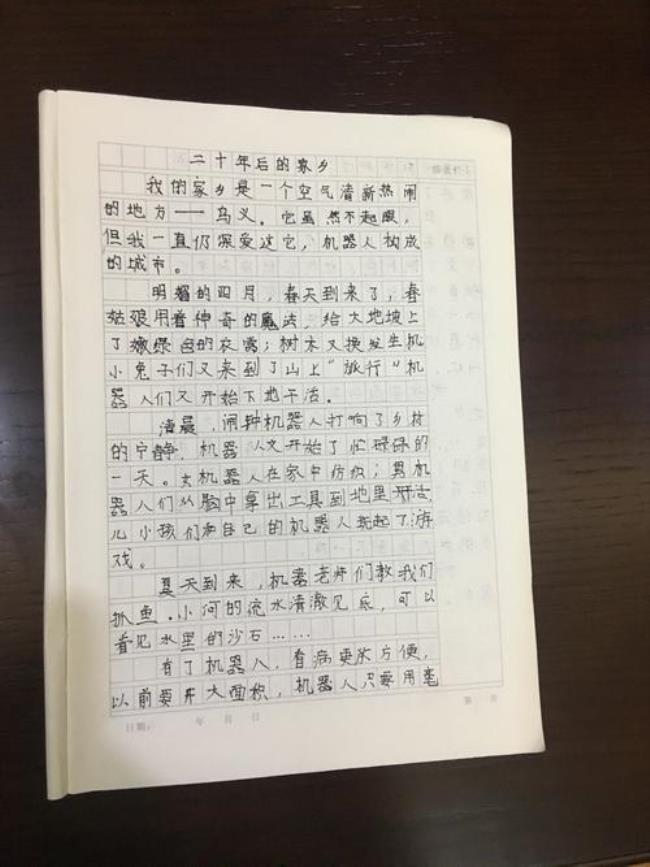 二十年后的家乡
我的家乡是一个空气清新热闹
的地方——乌义。它虽然不起眼,
但我一直仍深爱这它,机器人构成
的城市。
明媚的四月,春天到来了,春
姑娘用着神奇的魔法,给大地坡上
了嫩绿色的衣露;树木又换发生机
小兔子们又来到了山上“旅行”机
器人们又开始下地干活。
清晨,闹钟机器人打响了乡村
的宁静,机器人又开始了忙碌碌的
一天。女机器人在家中纺织;男机
器人们从脑中拿出工具到地里开
儿小孩们和自己的机器人玩起了游
戏。
夏天到来,机器老师们教我们
抓鱼.小河的流水清澈见底,可以
看见水里的沙石……
有了机器人,看病更方便,
以前要开大面积,机器人只要用毫
日期: 年 月 日
第 页